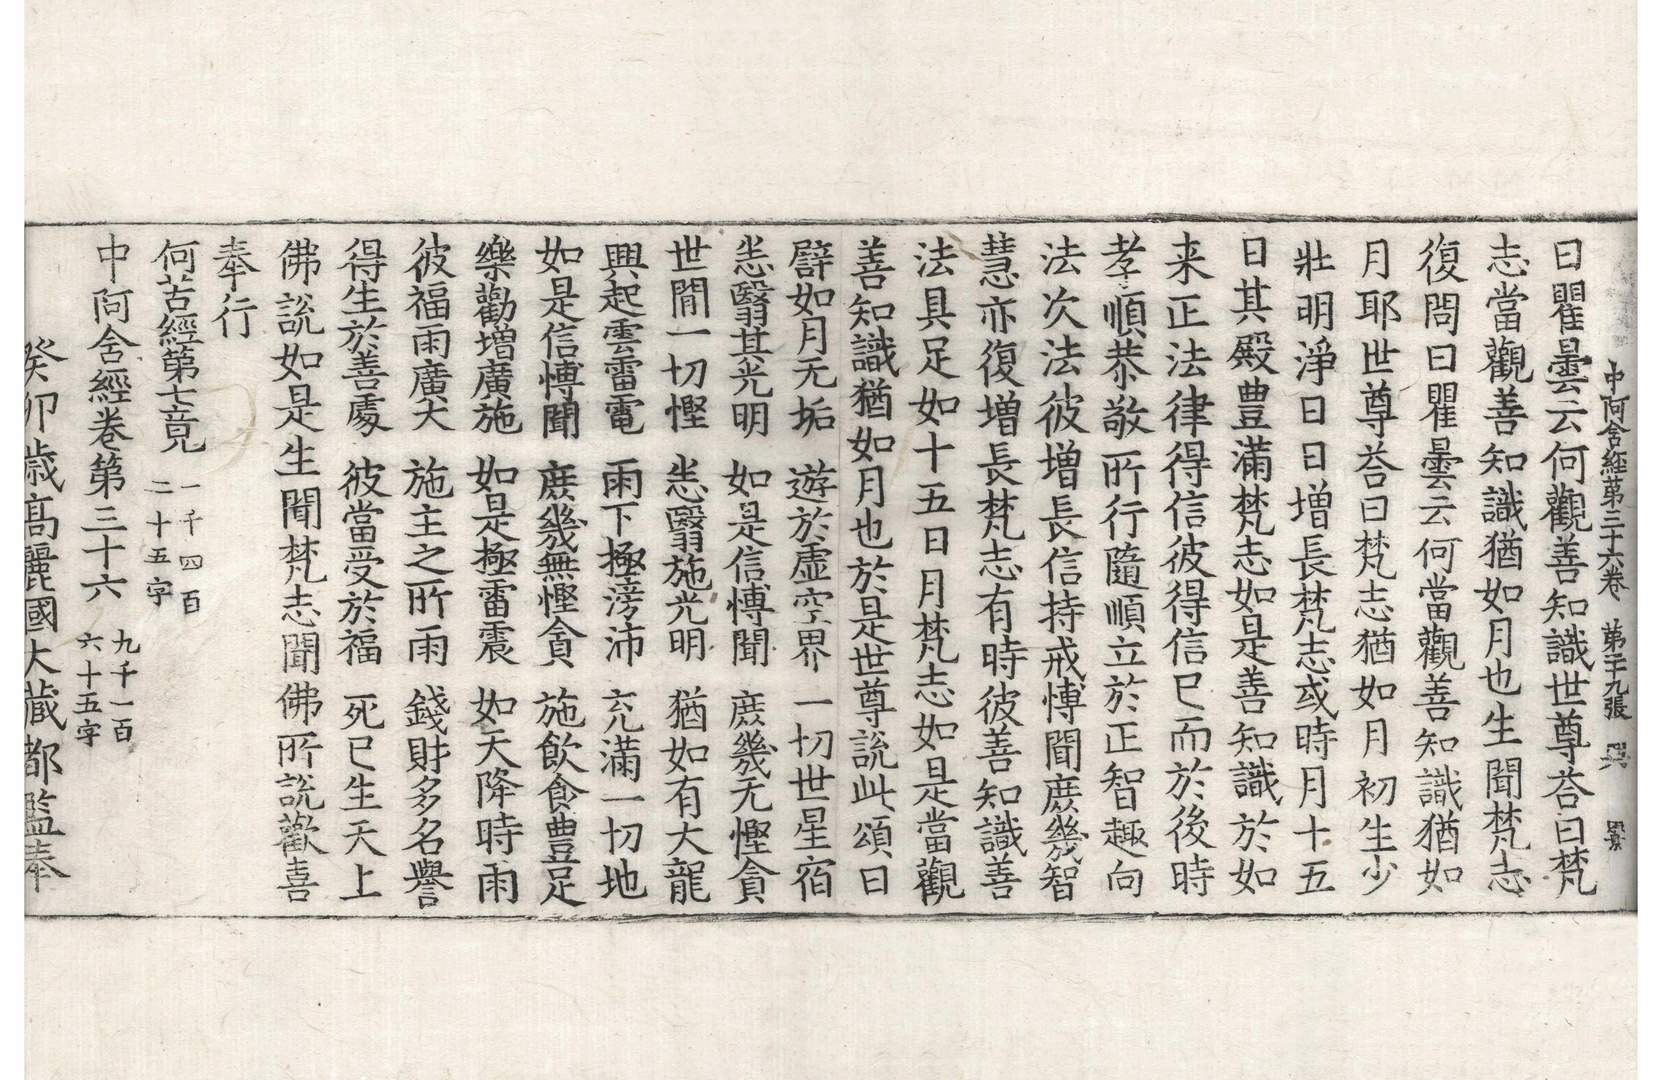 中阿含經第三十六卷 第二十九張 興
曰瞿曇云何觀善知識世尊荅曰梵
志當觀善知識猶如月也生聞梵志
復問曰瞿曇云何當觀善知識猶如
月耶世尊荅曰梵志猶如月初生少
壯明淨日日增長梵志或時月十五
日其殿豊滿梵志如是善知識於如
来正法律得信彼得信已而於後時
孝順恭敬所行隨順立於正智趣向
法次法彼增長信持戒愽聞庶幾智
慧亦復增長梵志有時彼善知識善
法具足如十五日月梵志如是當觀
善知識猶如月也於是世尊說此頌曰
譬如月无垢 遊於虛空界 一切世星宿
悉翳其光明 如是信愽聞 庶幾无慳貪
世間一切慳 悉翳施光明 猶如有大龍
興起雲雷電 雨下極滂沛 充滿一切地
如是信愽聞 庶幾無慳貪 施飲食豊足
樂勸增廣施 如是極雷震 如天降時雨
彼福雨廣大 施主之所雨 錢財多名譽
得生於善處 彼當受於福 死已生天上
佛說如是生聞梵志聞佛所說歡喜
奉行
何苦經第七竟 一千四百二十五字
中阿含經卷第三十六 九千一百六十五字
癸卯歲高麗國大藏都監奉